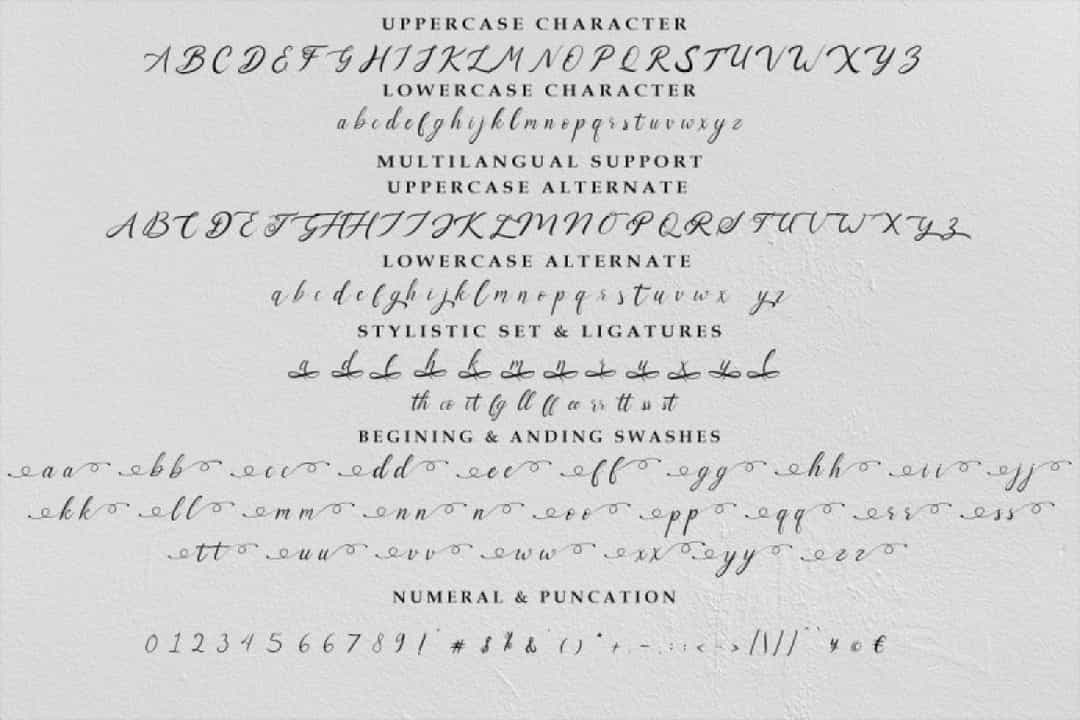 UPPERCASE CHARACTER
A B C D E F G H I J K L M N O P Q R S T U V W X Y Z
LOWERCASE CHARACTER
a b c d e f g h i j k l m n o p q r s t u v w x y z
MULTILANGUAL SUPPORT
UPPERCASE ALTERNATE
A B C D E F G H I J K L M N O P Q R S T U V W X Y Z
LOWERCASE ALTERNATE
a b c d e f g h i j k l m n o p q r s t u v w x y z
STYLISTIC SET & LIGATURES
a d f h k m n r u x y l
th co it fg ll ff ee rr tt ss st
BEGINING & ANDING SWASHES
aa bb cc dd ee ff gg hh ii jj
kk ll mm nn n oo pp qq rr ss
tt uu vv ww xx yy zz
NUMERAL & PUNCATION
0 1 2 3 4 5 6 6 7 8 9 ! # $ % & ( ) * + , - . : ; < = > / | \ ] / ¥ © €